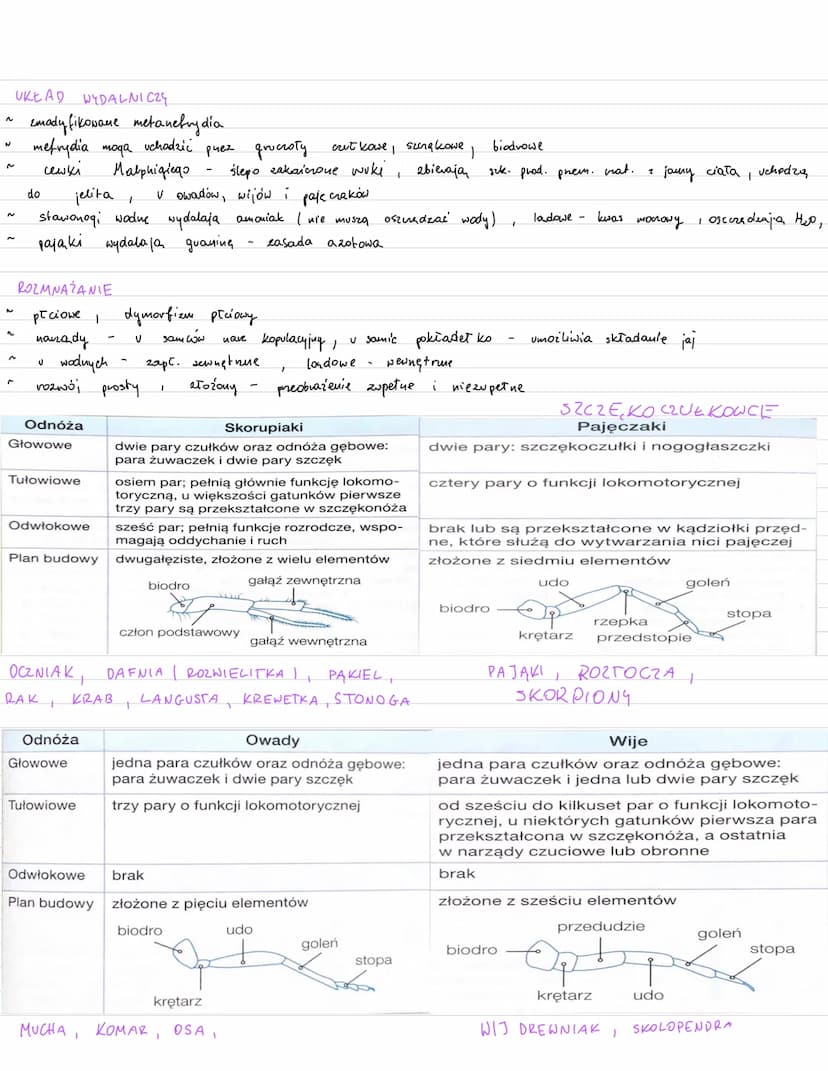 UKŁAD WYDALNICZY
~ zmodyfikowane metanefrydia
~ mefrydia mogą uchodzić przez gruczoły czułkowe, szczękowe, biodrowe
~ cewki Malphigiego - ślepo zakończone woreczki, zbierają szk. prod. przem. mat. z jamy ciała, uchodzą
do jelita, u owadów, wijów i pajęczaków
~ stawonogi wodne wydalają amoniak (nie muszą oszczędzać wody), lądowe - kwas moczowy, oszczędzają H₂O,
~ pająki wydalają guaninę - zasada azotowa
ROZMNAŻANIE
~ płciowe, dymorfizm płciowy
~ narządy - u samców narz. kopulacyjny, u samic pokładełko - umożliwia składanie jaj
~ u wodnych - zapł. zewnętrzne, lądowe - wewnętrzne
~ rozwój prosty, złożony - przeobrażenie zupełne i niezupełne
SZCZĘKOCZUŁKOWCE
Odnóża Skorupiaki Pajęczaki
Głowowe dwie pary czułków oraz odnóża gębowe: dwie pary: szczękoczułki i nogogłaszczki
para żuwaczek i dwie pary szczęk
Tułowiowe osiem par; pełnią głównie funkcję lokomo- cztery pary o funkcji lokomotorycznej
toryczną, u większości gatunków pierwsze
trzy pary są przekształcone w szczękonóża
Odwłokowe sześć par; pełnią funkcje rozrodcze, wspo- brak lub są przekształcone w kądziołki przęd-
magają oddychanie i ruch ne, które służą do wytwarzania nici pajęczej
Plan budowy dwugałęziste, złożone z wielu elementów złożone z siedmiu elementów
biodro gałąź zewnętrzna udo goleń
biodro rzepka stopa
człon podstawowy gałąź wewnętrzna krętarz przedstopie
OCZNIAK, DAFNIA (ROZWIELITKA), PĄKIEL, PAJĄKI, ROZTOCZA,
RAK, KRAB, LANGUSTA, KREWETKA, STONOGA SKORPIONY
Odnóża Owady Wije
Głowowe jedna para czułków oraz odnóża gębowe: jedna para czułków oraz odnóża gębowe:
para żuwaczek i dwie pary szczęk para żuwaczek i jedna lub dwie pary szczęk
Tułowiowe trzy pary o funkcji lokomotorycznej od sześciu do kilkuset par o funkcji lokomoto-
rycznej, u niektórych gatunków pierwsza para
przekształcona w szczękonóża, a ostatnia
w narządy czuciowe lub obronne
Odwłokowe brak brak
Plan budowy złożone z pięciu elementów złożone z sześciu elementów
biodro udo goleń stopa przedudzie goleń
biodro stopa
krętarz krętarz udo
MUCHA, KOMAR, OSA, WIJ DREWNIAK, SKOLOPENDRA